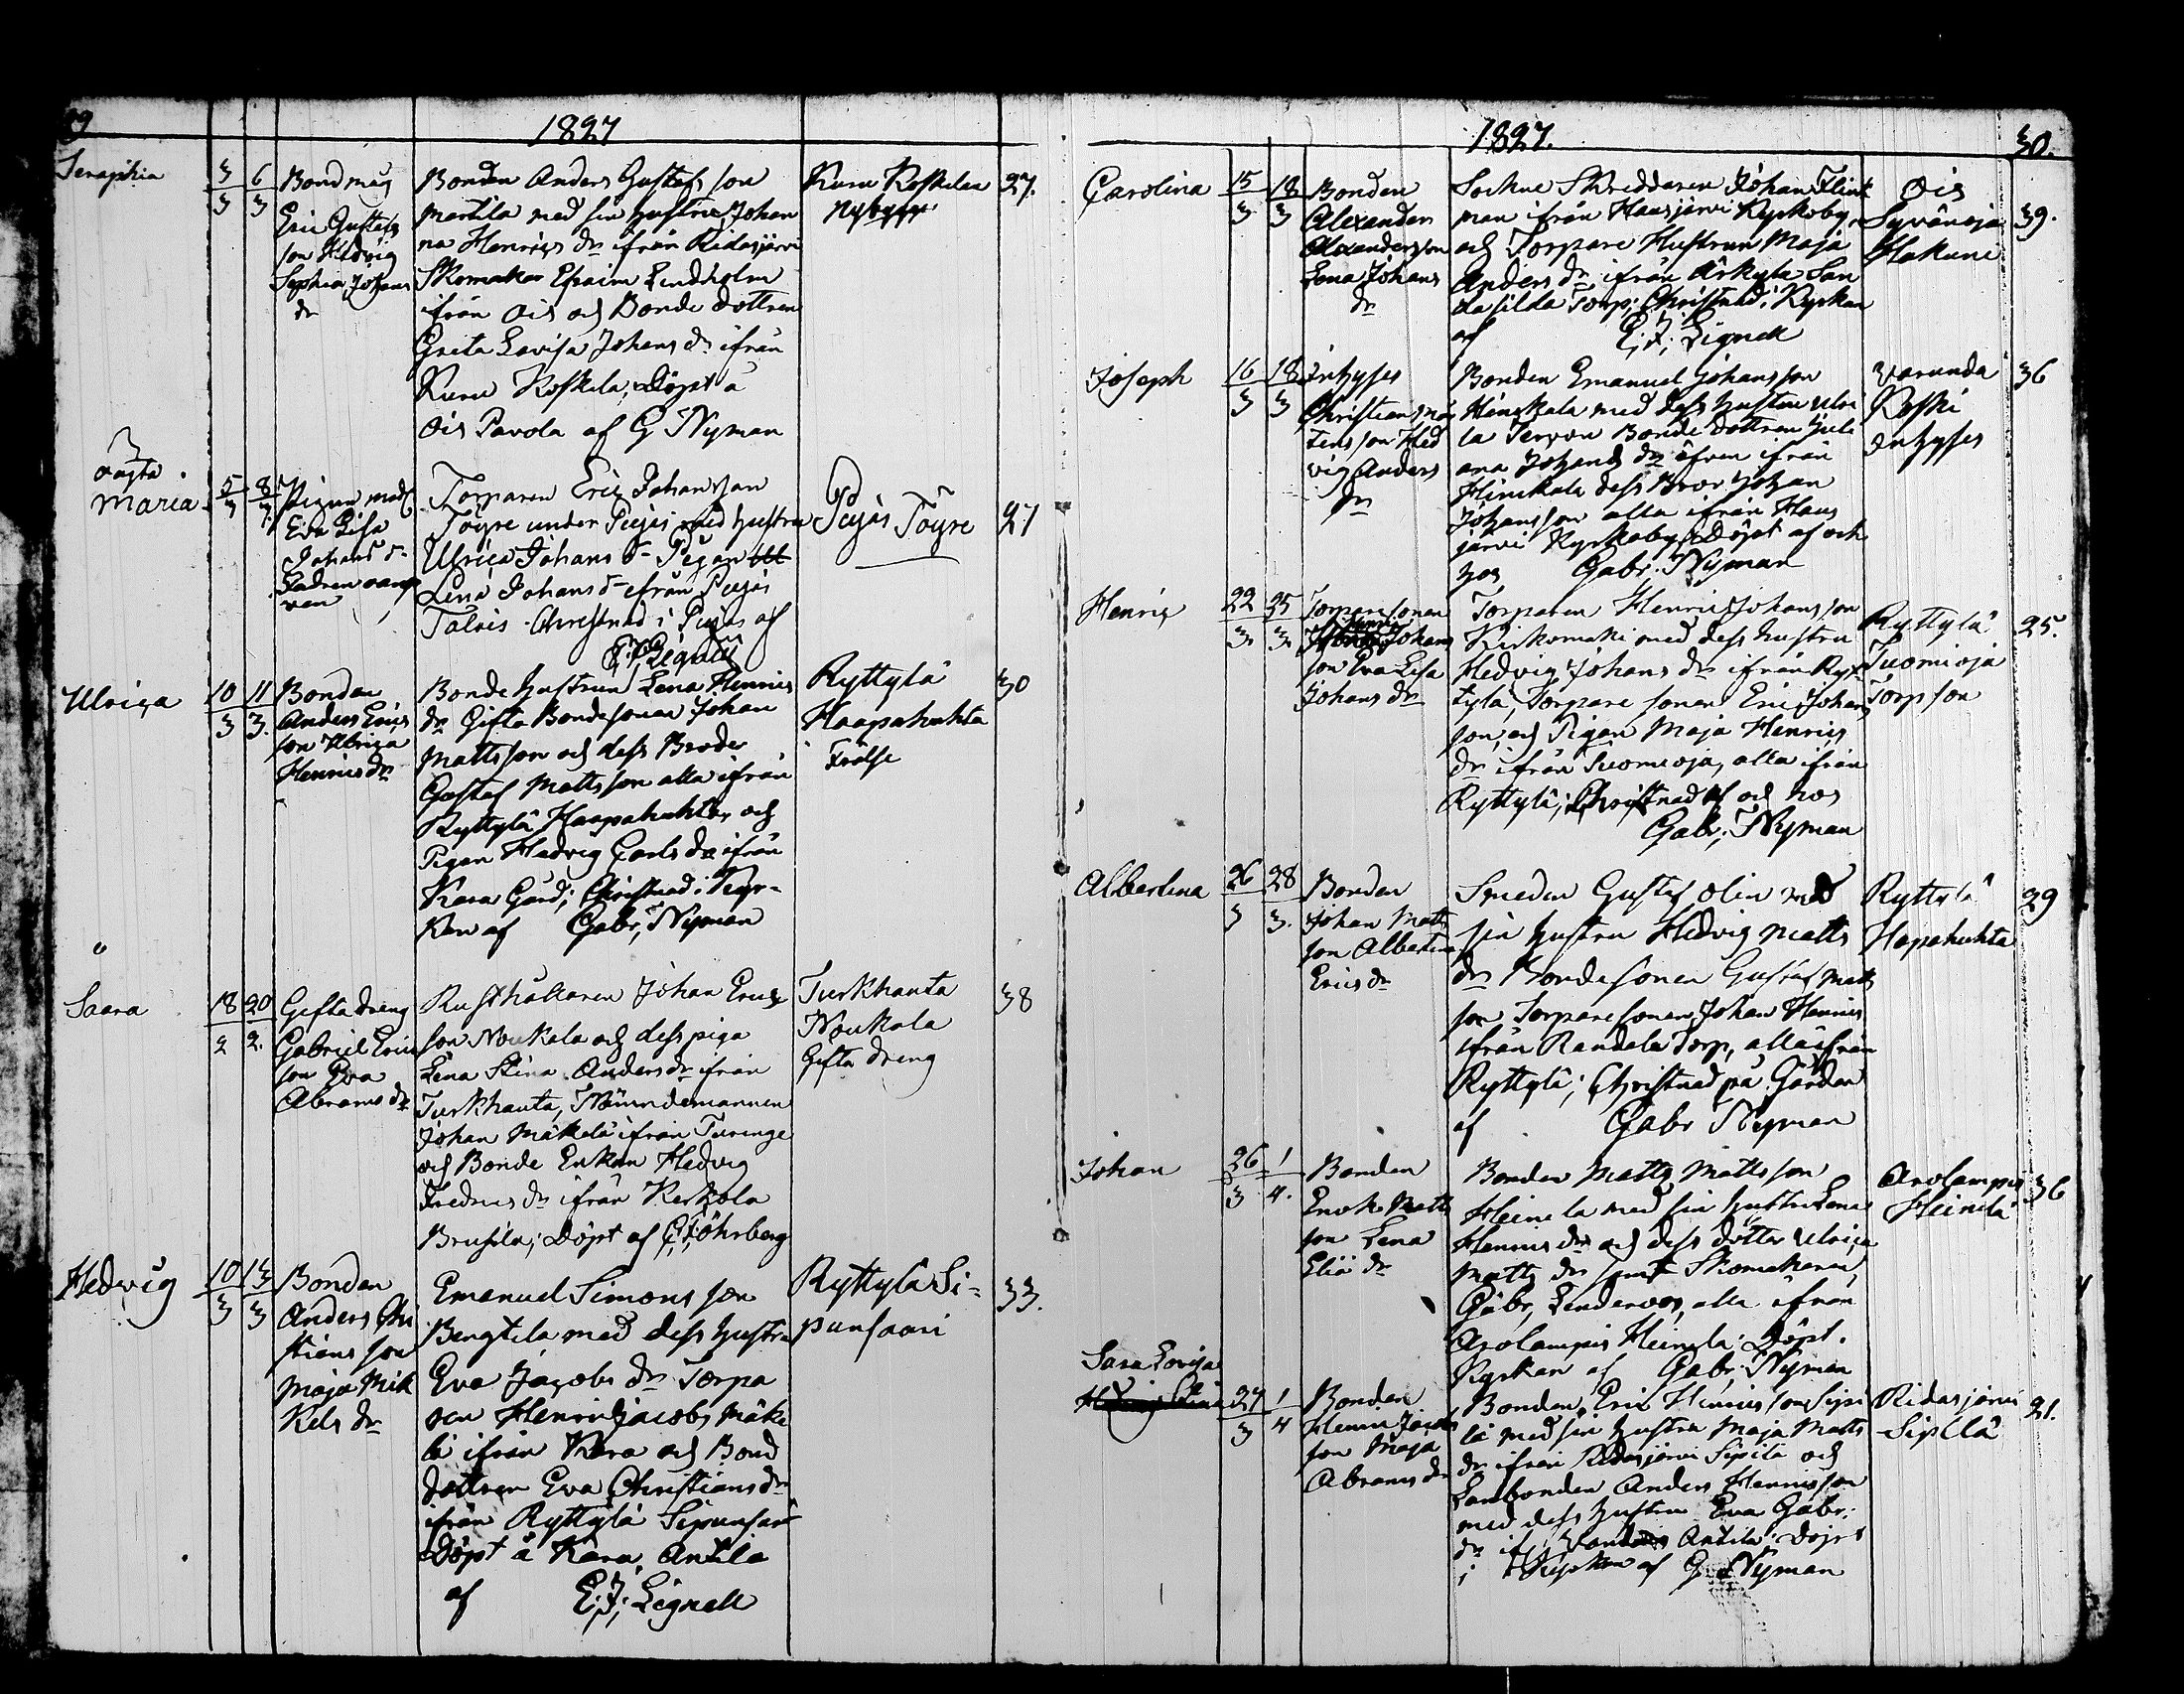 29
1827
Seraphia
3 6
3 3
Bondmåg
Eric Gustafs
son Hedvig
Sophia Johans
dr
Bonden Anders Gustafs son
Martila med sin hustru Johan
na Henrics dr ifrån Ridasjärvi
Skomakar Efraim Lindholm
ifrån Ois och Bonde dottren
Greta Lovisa Johans dr ifrån
Kuru Koskela; Döpt å
Ois Pavola af G Nyman
Kuru Koskelan
27.
oägta
Maria
5 8
3 3
Pigan
Eva Lisa
Johans dr
Fadren
Torparen Eric Johansson
Töyre under Pujas med hustru
Ulrica Johans dr Pigan
Lena Johans dr ifrån Pujas
Talois Christnad i Pujas af
E. J. Lignell
Pujas Töyre
27
Ulrica
10 11
3 3.
Bonden
Anders Erics
son Ulrica
Henrics dr
Bonde hustrun Lena Henrics
dr Gifta Bondesonen Johan
Mattsson och dess Broder
Gustaf Mattsson alla ifrån
Ryttylä Haapahuhta, och
Pigan Hedvig Carls dr ifrån
Kara Gård; Christnad i Kyr-
kan af Gabr; Nyman
Ryttylä
Haapahuhta
Frälse
30
Saara
18 20
2 2.
Gifta dreng
Gabriel Erics
son Eva
Abrams dr
Rusthållaren Johan Erics
son Noukala och dess piga
Lena Stina Anders dr ifrån
Turkhauta, Nämndemannen
Johan Mäkelä ifrån Turenge
och Bonde Enkan Hedvig
Fredrics dr ifrån Kerkola
Brusila; Döpt af C; J; Öhrberg
Turkhauta
Noukala
Gifta dreng
38
Hedvig
10 13
3 3
Bonden
Anders Chri
stians son
Maja Mik
kels dr
Emanuel Simons son
Bengtila med dess hustru
Eva Jacobs dr Torpa
ren Henric Jacobs Mäke
lä ifrån Kara och Bond
dottren Eva Christians dr
ifrån Ryttylä Sipunsaari
Döpt å Kara Antila
af E; J; Lignell
Ryttylä Si-
punsaari
33.
1827.
30.
Carolina
15 18
3 3
Bonden
Alexander
Alexandersson
Lena Johans
dr
Sockne Skreddaren Johan Flink
man ifrån Hausjärvi Kyrkoby,
och Torpare Hustrun Maja
Anders dr ifrån Erkylä San
dasilda Torp; Christnad i Kyrkan
af E; J; Lignell
Ois
Syvänoja
Hakuni
39.
Joseph
16 18
3 3
Inhyses
Christian Mår
tens son Hed
vig Anders
dr
Bonden Emanuel Johansson
Hinskala med dess hustru Ulri
ca Bonde dottren Juli
ana Johans dr äfven ifrån
Hinskala dess Bror Johan
Johansson alla ifrån Haus
järvi Kyrkoby; Döpt af och
hos Gabr: Nyman
Varunda
Koski
Inhyses
36
Henric
22 25
3. 3.
Torparesonen
Johans
son Eva Lisa
Johans dr
Torparen Henric Johansson
Kirkomäki med dess hustru
Hedvig Johans dr ifrån Ryt
tylä, Torpare sonen Eric Johans
son, och Pigan Maja Henrics
dr ifrån Tuomioja, alla ifrån
Ryttylä; Christnad af och hos
Gabr; Nyman
Ryttylä
Tuomioja
Torpson
25.
Albertina
26 28
3 3.
Bonden
Johan Matts
son Albertina
Erics dr
Smeden Gustaf Olin med
sin hustru Hedvig Matts
dr Bondesonen Gustaf Matts
son Torparesonen Johan Henrics
ifrån Randala Torp, alla ifrån
Ryttylä; Christnad på Gården
af Gabr Nyman
Ryttylä
Hapahuhta
29
Johan
26 1
3 4.
Bonden
Enok Matts
son Lena
Eliæ dr
Bonden Matts Mattsson
Heinola med sin hustru Lena
Henrics dr och dess dotter Ulrica
Matts dr samt Skomakaren
Gabr, Lindervos, alla ifrån
Arolampis Heinola; Döpt.
Kyrkan af Gabr: Nyman
Arolampis
Heinola
36
Sara Lovisa
27 1
3 4
Bonden
Henric Jacobs
son Maja
Abrams dr
Bonden Eric Henrics son Sipi
lä med sin hustru Maja Matts
dr ifrån Ridasjärvi Sipilä och
Lanbonden Anders Henricsson
med dess hustru Eva Gabr:
dr if Antila: Döpt
i Kyrkan af G. Nyman
Ridasjärvi
Sipilä
21.